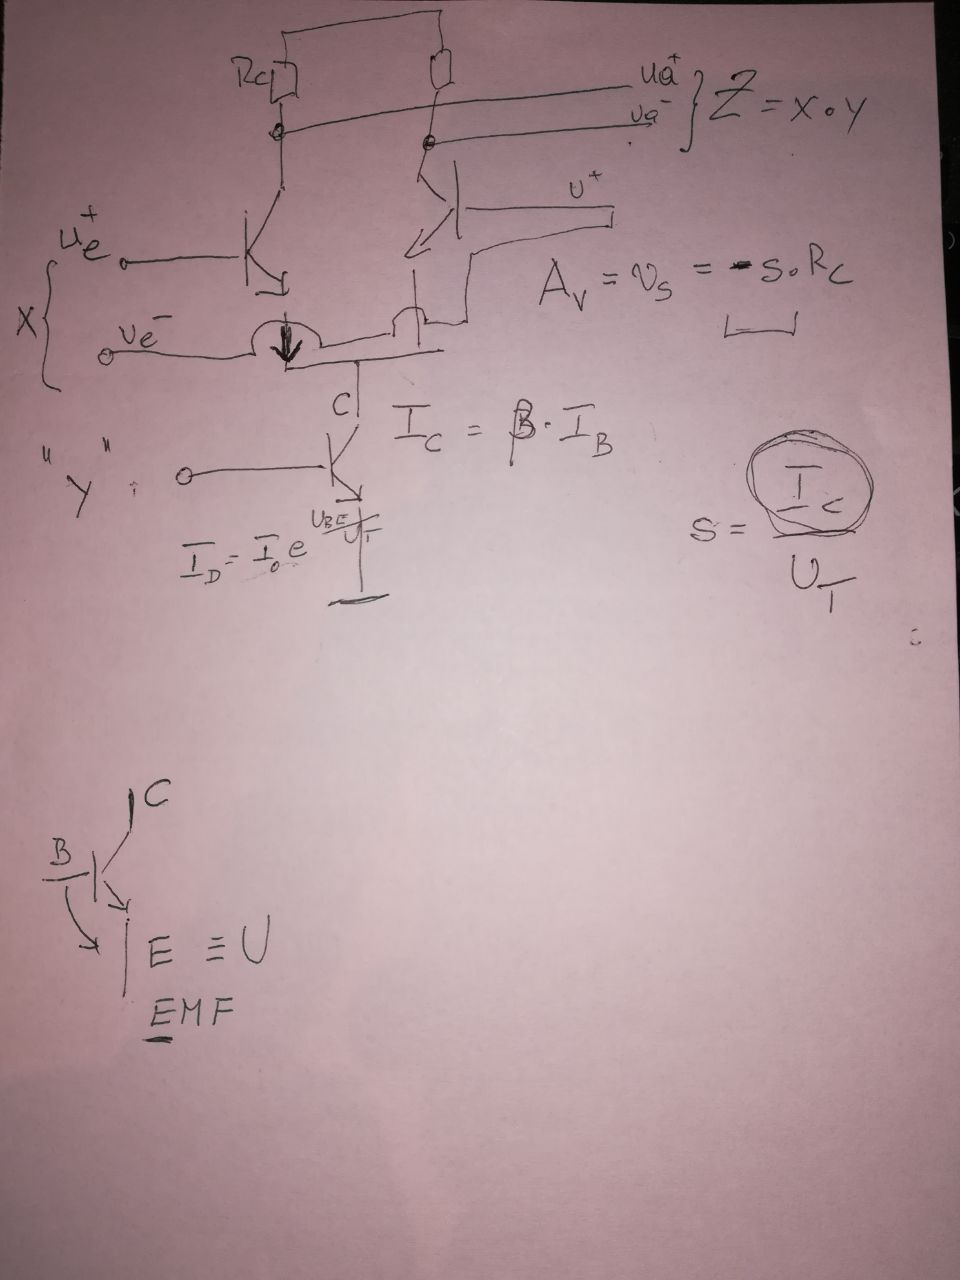 Rc
ua+
ua-
Z = x · y
u+
ue+
X
ue-
Av = vs = -s · Rc
C
Ic = β · IB
"y"
ID = I0 e UBE/UT
s = Ic/UT
C
B
E ≡ U
EMF